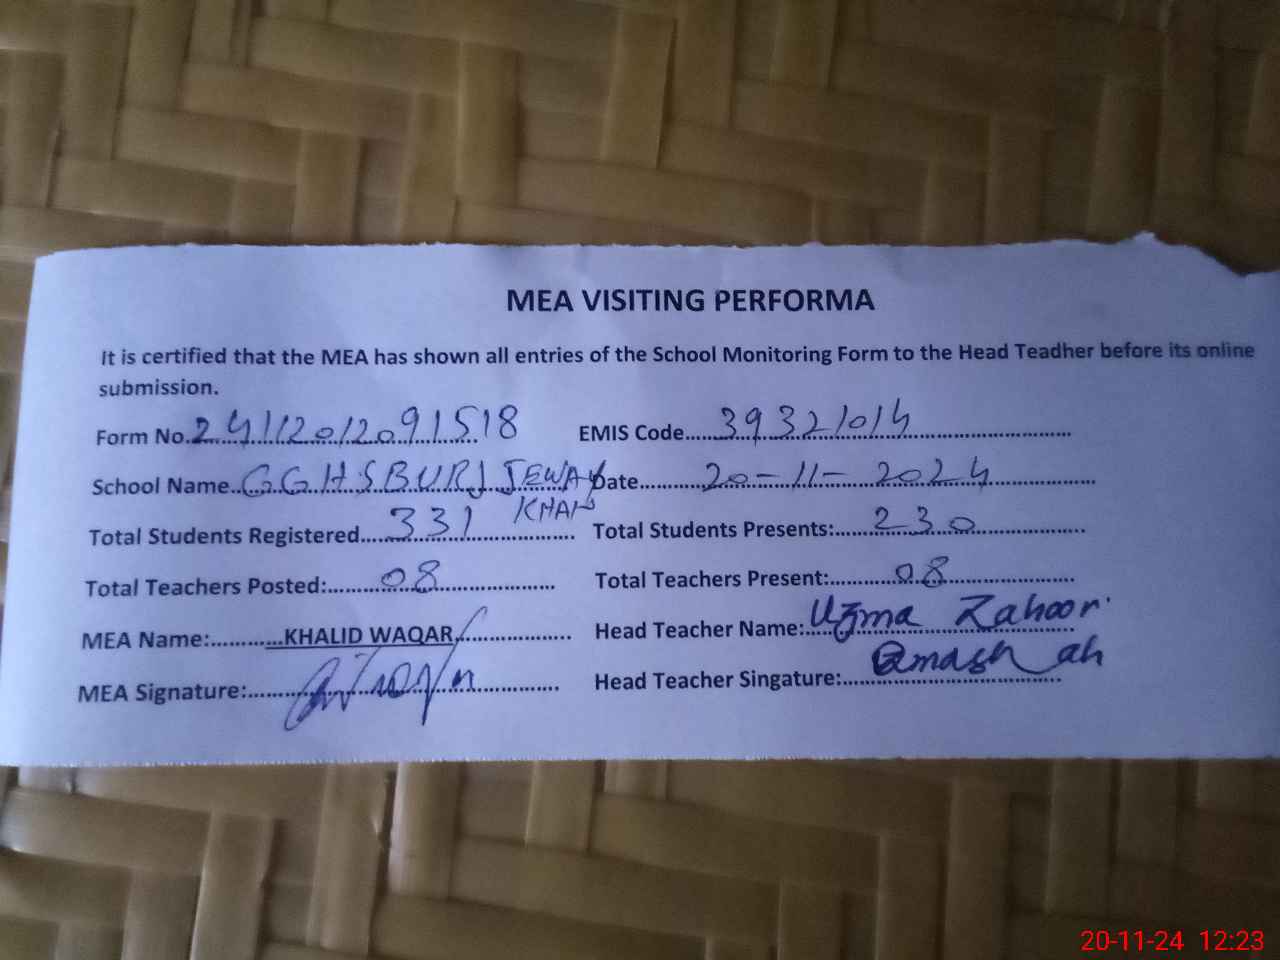 MEA VISITING PERFORMA
It is certified that the MEA has shown all entries of the School Monitoring Form to the Head Teadher before its online
submission.
Form No. 24112012091518 EMIS Code 39321014
School Name GGHS BURJ JEWAY KHAN Date 20-11-2024
Total Students Registered 331 Total Students Presents: 230
Total Teachers Posted: 08 Total Teachers Present: 08
MEA Name: KHALID WAQAR Head Teacher Name: Uzma Zahoor
MEA Signature: Head Teacher Singature:
20-11-24 12:23